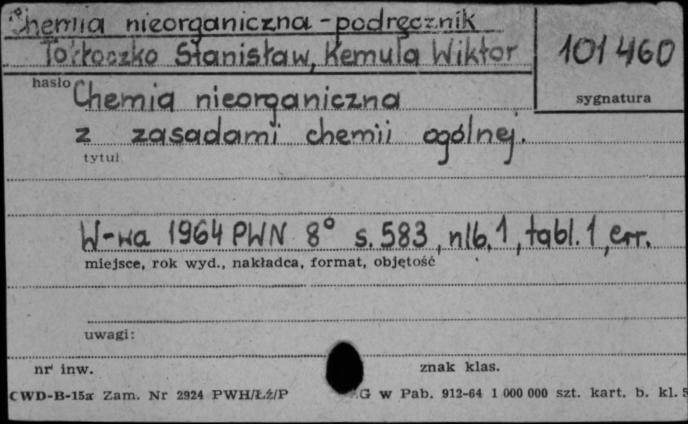 Chemia nieorganiczna - podręcznik
Tołłoczko Stanisław, Kemula Wiktor
101460
hasło
sygnatura
Chemia nieorganiczna
z zasadami chemii ogólnej.
tytuł
W-wa 1964 PWN 8° s. 583, nlb. 1, tabl. 1, err.
miejsce, rok wyd., nakładca, format, objętość
uwagi:
nr inw.
znak klas.
CWD-B-15a Zam. Nr 2924 PWH/Łź/P
G w Pab. 912-64 1 000 000 szt. kart. b. kl. 5